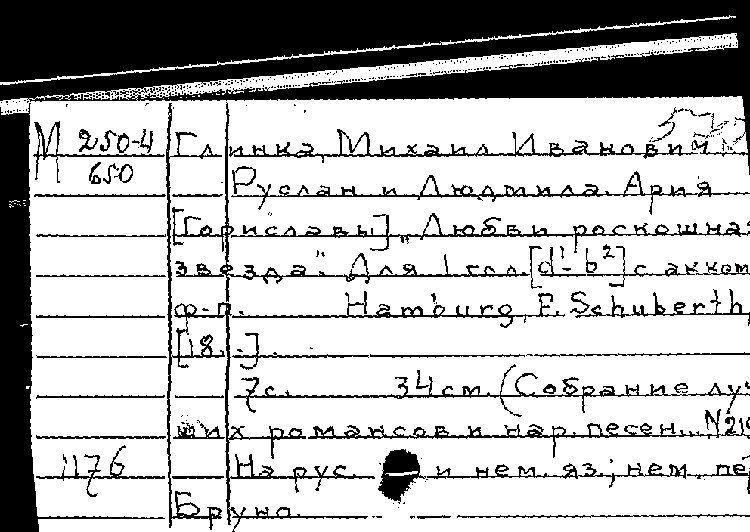 М 250-4 Глинка, Михаил Иванович.
650 Руслан и Людмила. Ария
[Гориславы] „Любви роскошная
звезда". Для 1 гол. [d'-b²] с акком
ф-п. Hamburg, F. Schuberth,
[18..-].
7с. 34см. (Собрание луч
ших романсов и нар. песен...
1176 На рус. и нем. яз.; нем. пер
Бруно.